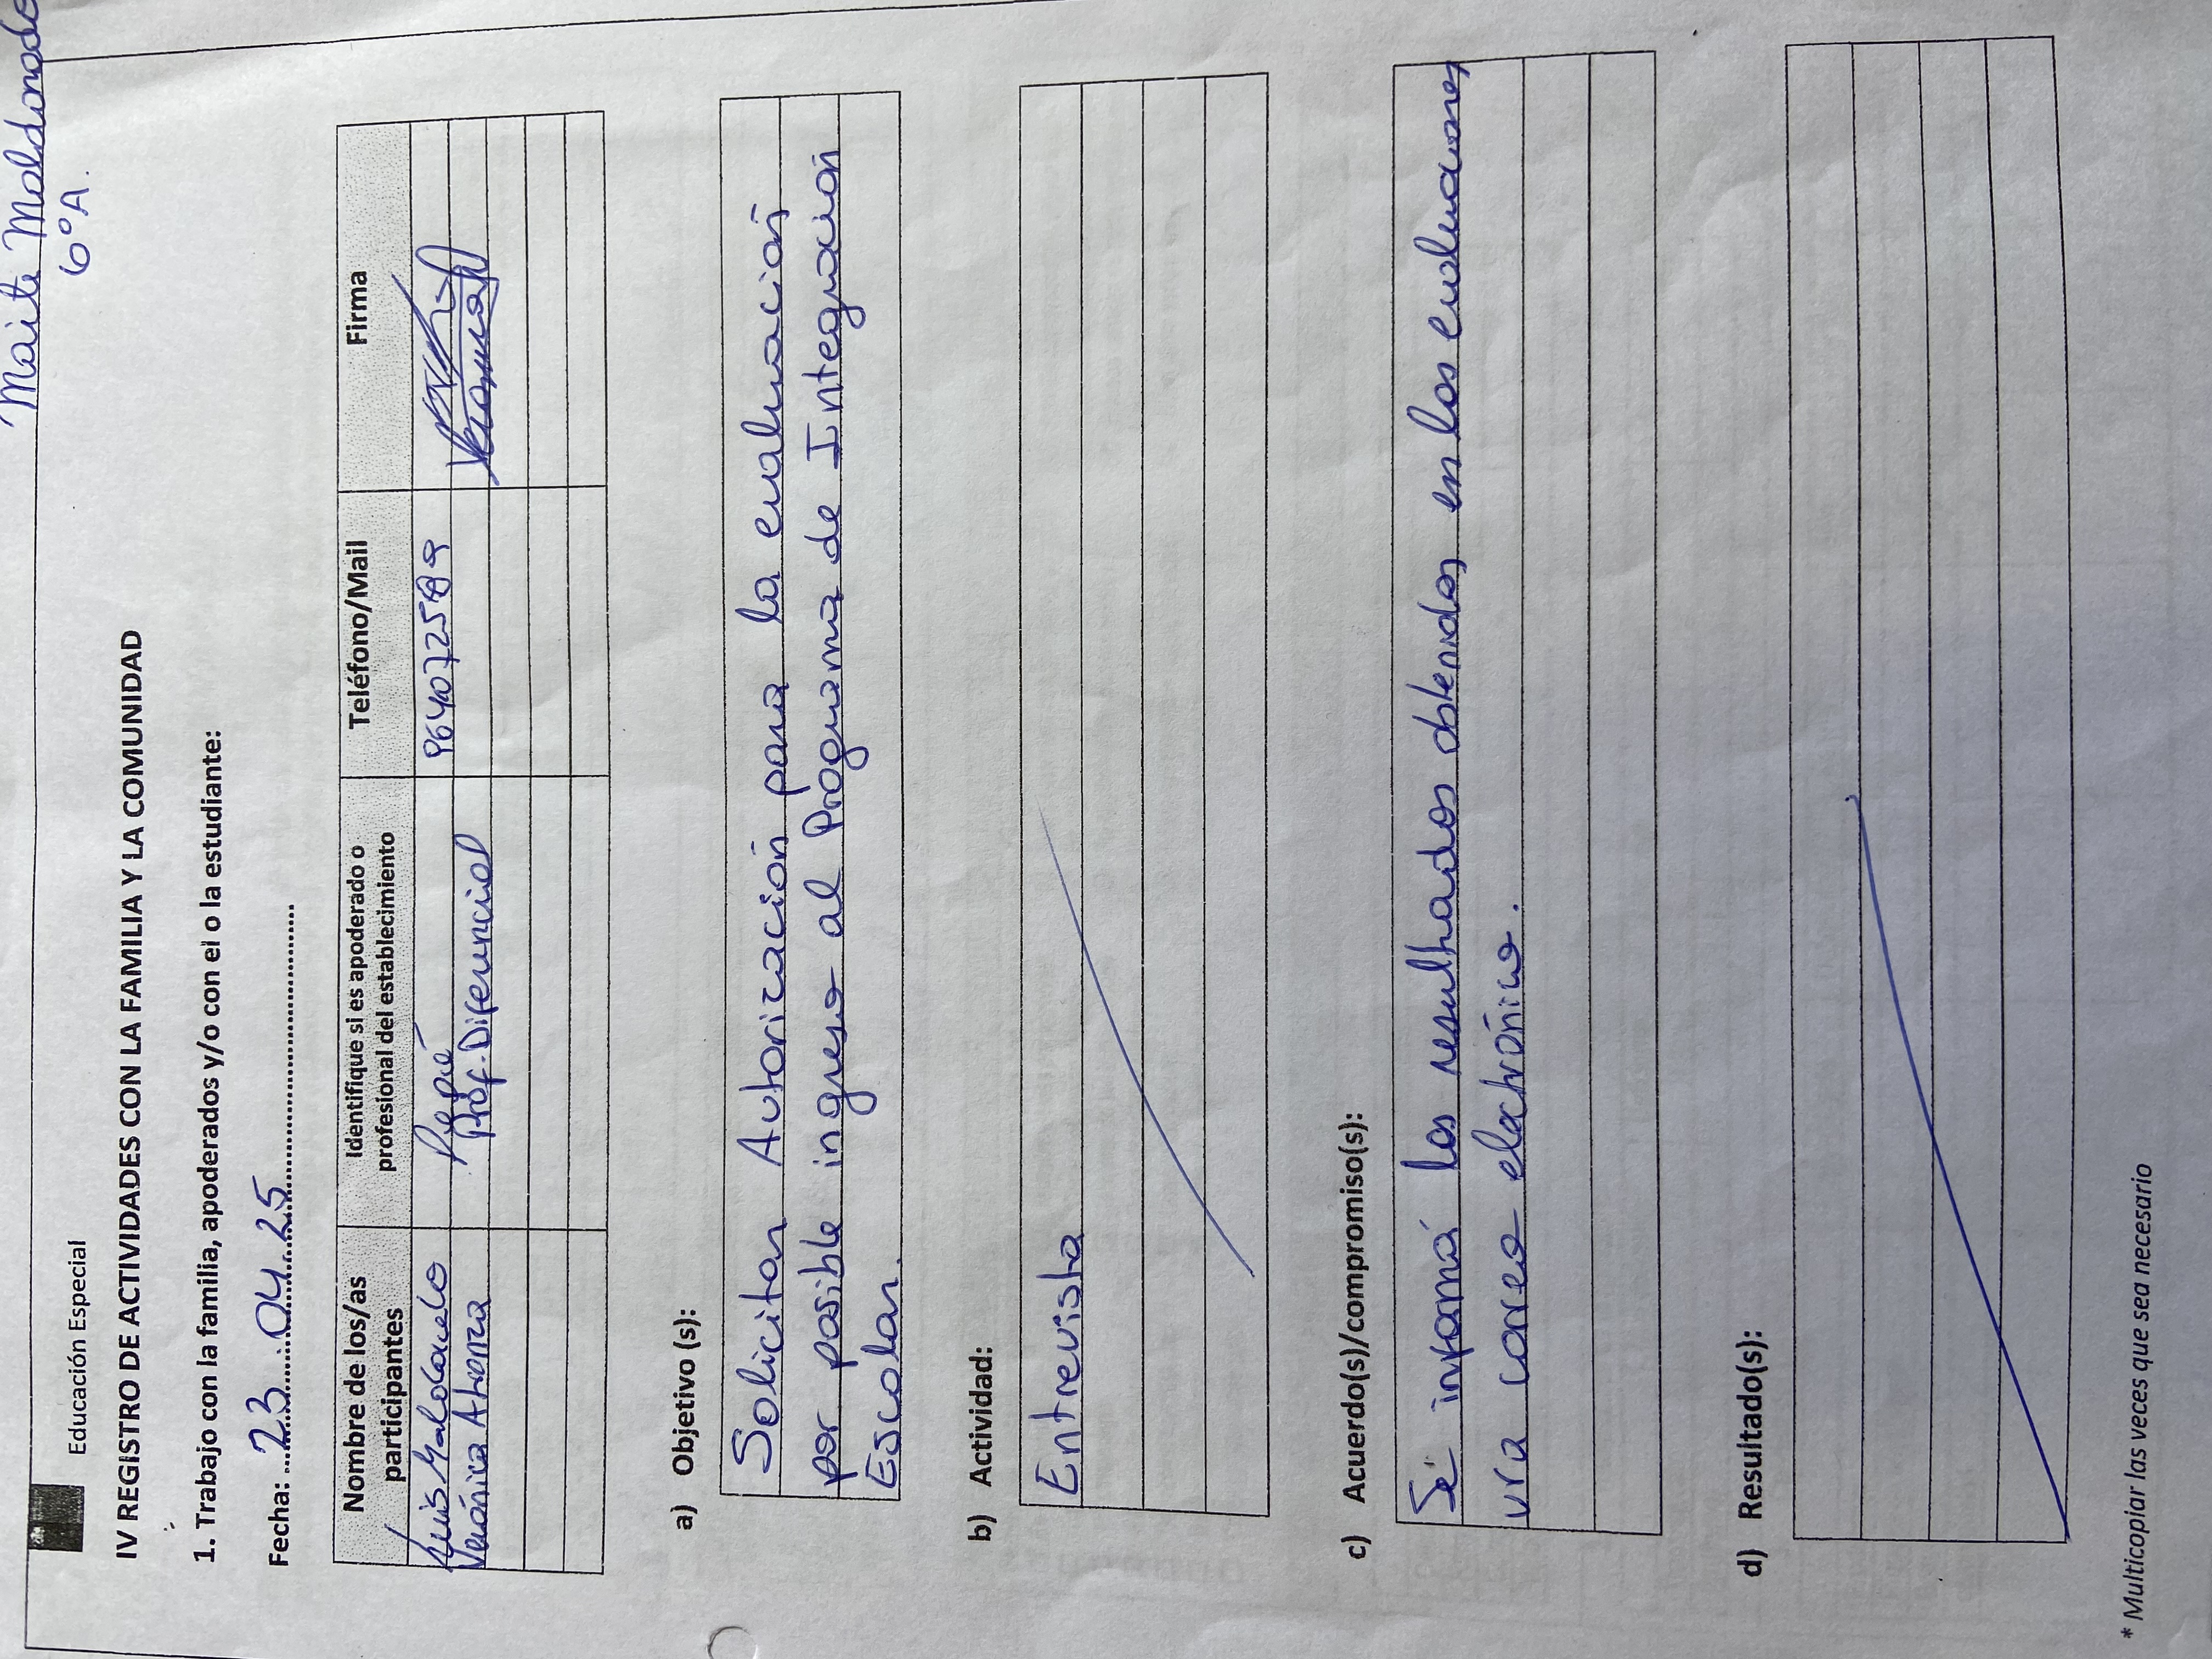 Maite Maldonado
6°A.
Educación Especial
IV REGISTRO DE ACTIVIDADES CON LA FAMILIA Y LA COMUNIDAD
1. Trabajo con la familia, apoderados y/o con el o la estudiante:
Fecha: 23.04.25
Nombre de los/as participantes Identifique si es apoderado o profesional del establecimiento Teléfono/Mail Firma
Luis Maldonado Papá
Verónica Prof. Diferencial
a) Objetivo (s):
Solicitar Autorización para la evaluación
por posible ingreso al Programa de Integración
Escolar.
b) Actividad:
Entrevista
c) Acuerdo(s)/compromiso(s):
Se informará los resultados obtenidos en las evaluaciones
vía correo electrónico.
d) Resultado(s):
* Multicopiar las veces que sea necesario